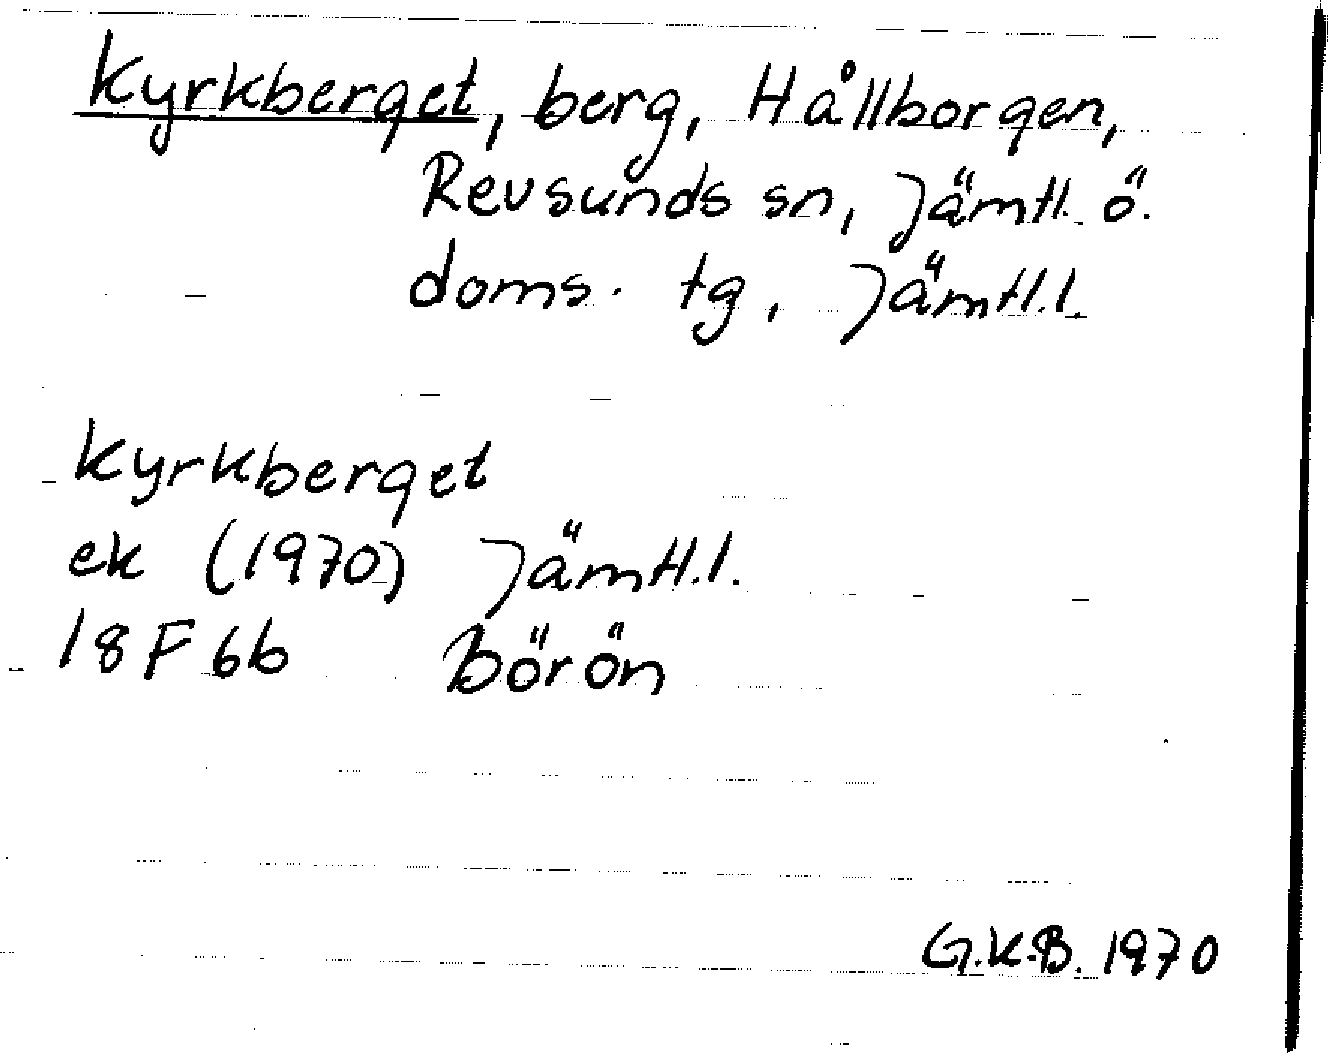 Kyrkberget, berg, Hållborgen,
Revsunds sn, Jämtl. ö.
doms. tg, Jämtl.l.
Kyrkberget
ek (1970) Jämtl.l.
18F 6b Börön
G.K.B. 1970